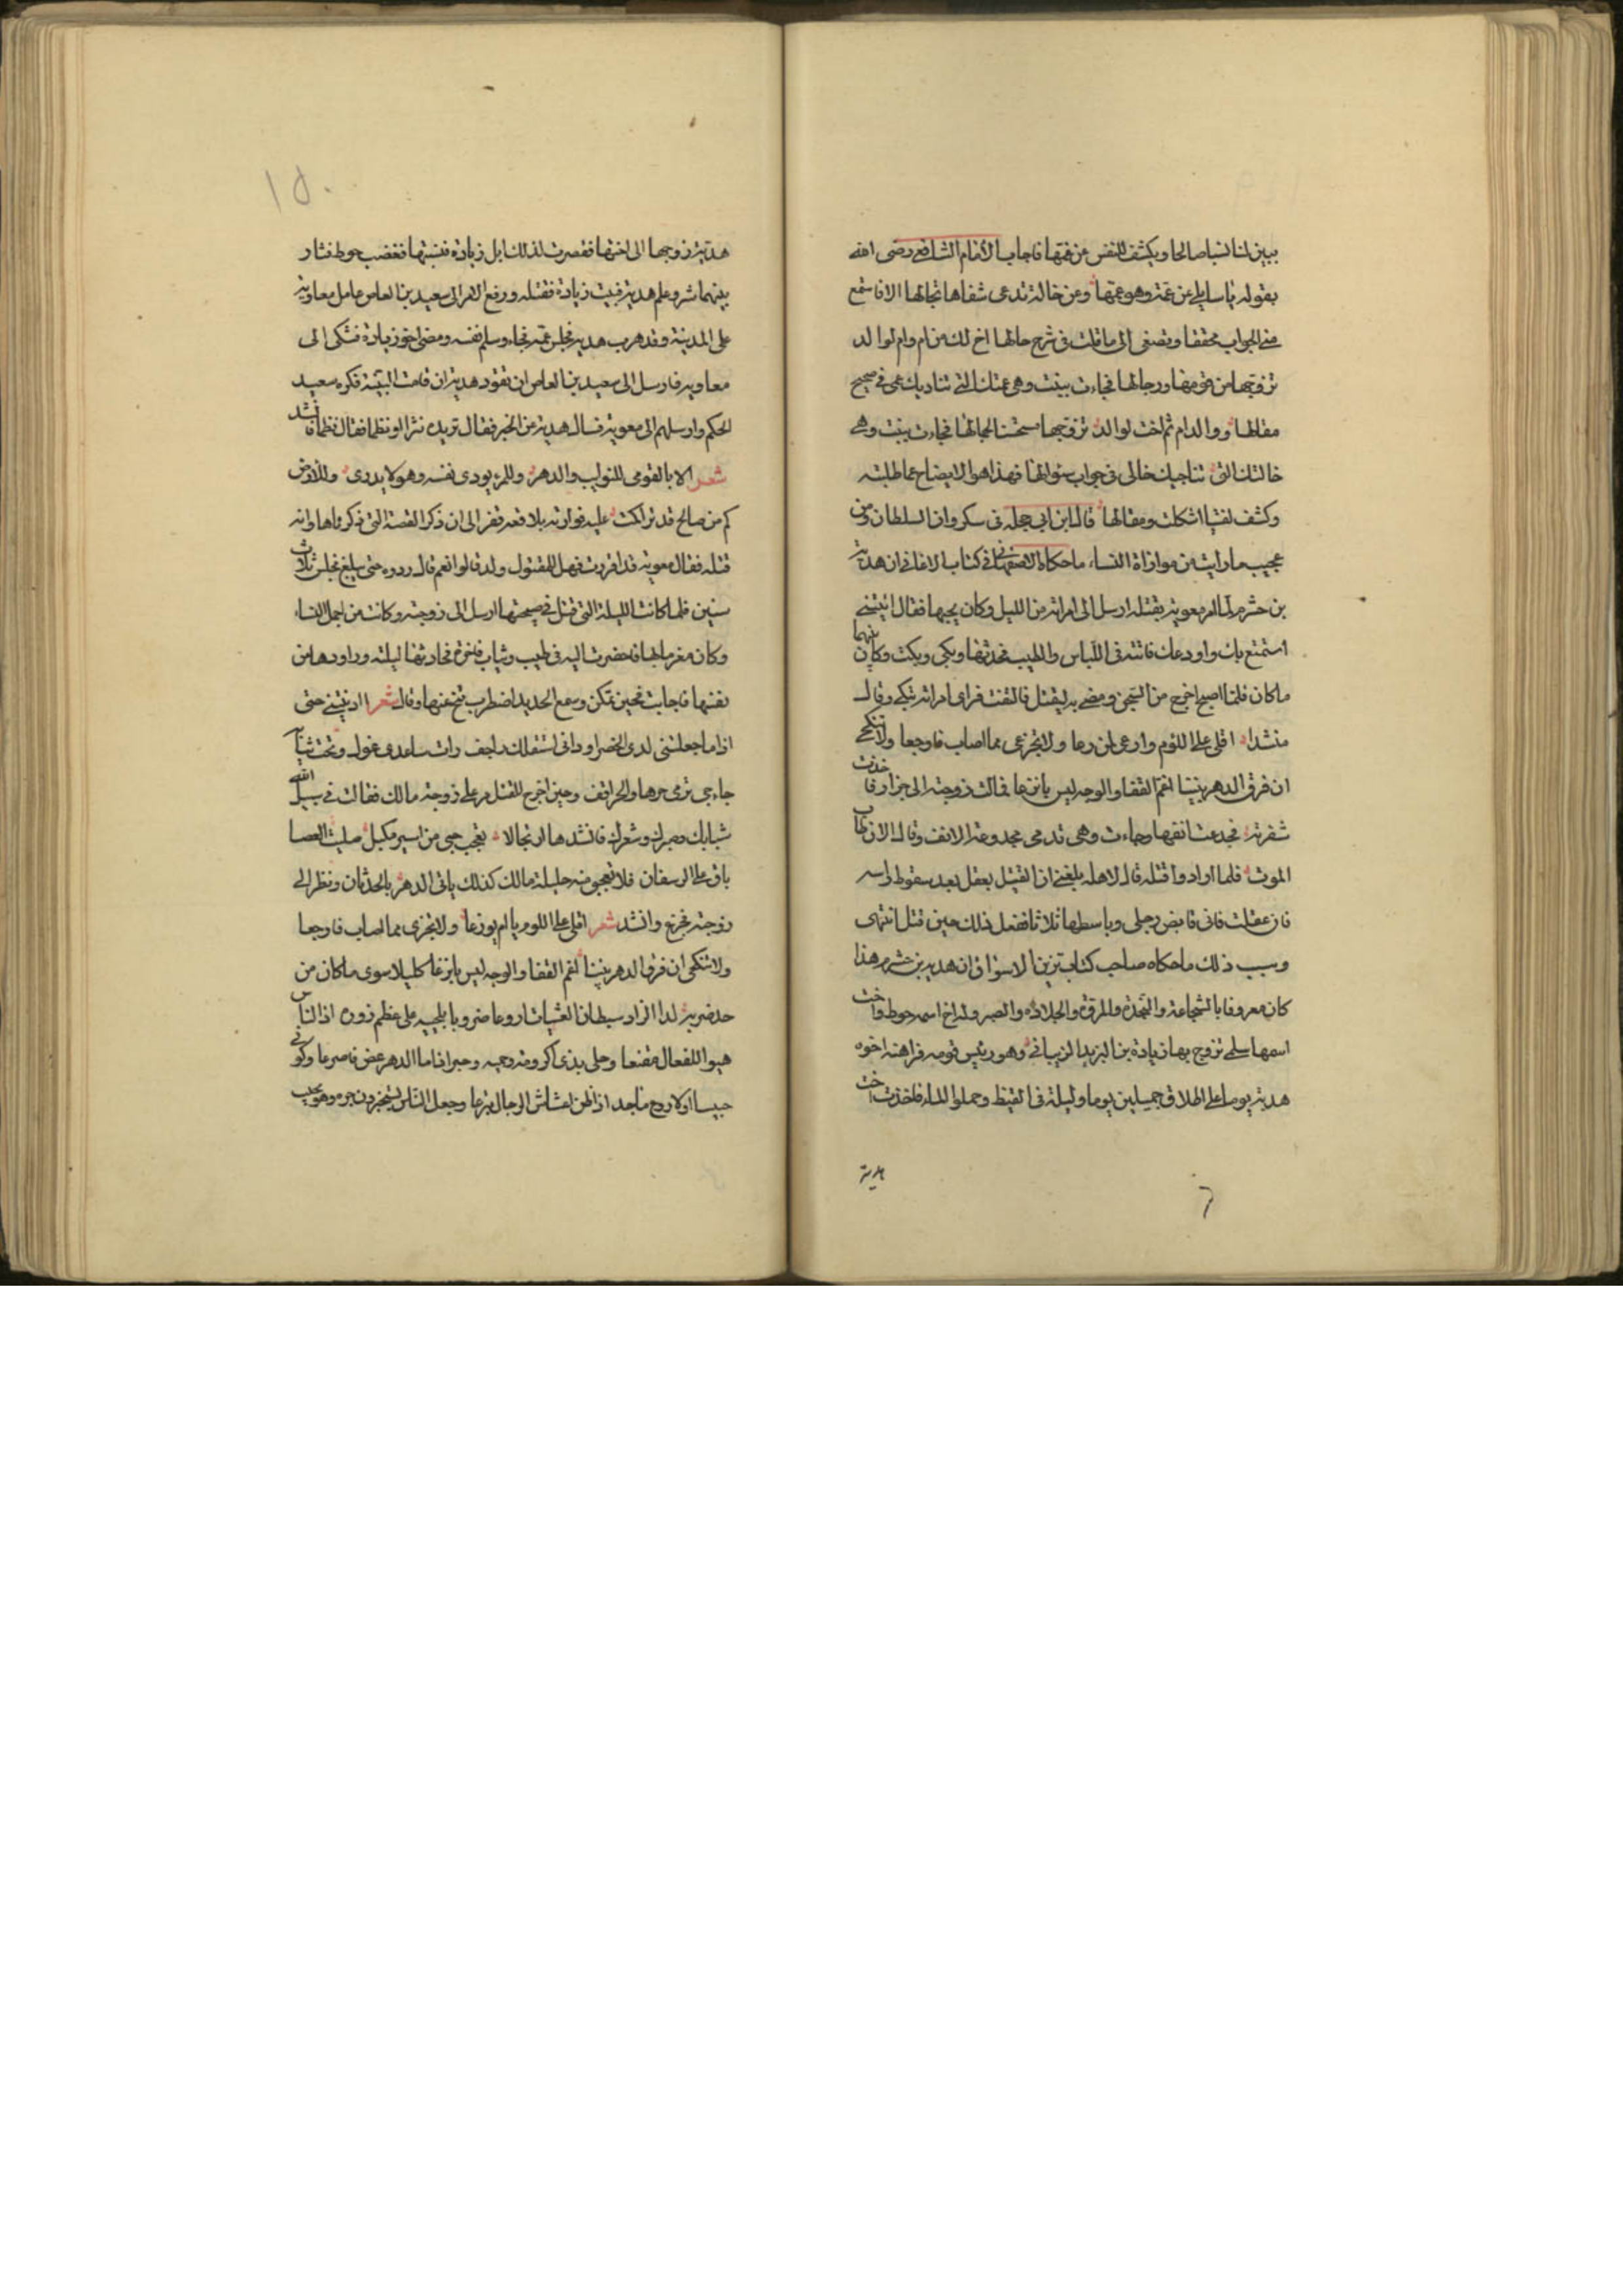 يبين لنا نسبا صالحا ويكشف للنفس عن غمتها فاجاب الامام الشافعي رضي الله
بقوله يا سايلي عن عمة وهو عمها وعن خالة تدعى شفاها بخالها الا فاستمع
مني الجواب محققا وتصغى الى ما قلت في شرح حالها اخ لك من ام وام لوالد
تزوجها من قومها ورجالها فجاءت ببنت وهي عمتك التي تناديك عمي في صحيح
مقالها ووالد ام ثم اخت لوالد تزوجها فجاءت ببنت وهي
خالتك التي تناجيك خالي في جواب سوالها فهذا هو الايضاح عما طلبته
وكشف لفتيا اشكلت ومقالها قال ابن ابي حجله في سكردان السلطان ومن
عجيب ما رايت من موازاة النساء ما حكاه الاصفهاني في كتاب الاغاني ان هدبة
بن خشرم لما امر معوية بقتله ارسل الى امراته من الليل وكان يحبها فقال ائتيني
استمتع بك واودعك فاتته في اللباس والطيب فحدثها وبكى وبكت وكان بينهما
ما كان فلما اصبح اخرج من السجن ومضي به ليقتل فالتفت فراى امراته تبكي وقال
منشدا اقلي علي اللوم وارعي لمن رعا ولا تجزعي مما اصاب فاوجعا ولا تنكحي
ان فرق الدهر بيننا اغم القفا والوجه ليس بانزعا فمالت زوجته الى جزار فاخذت
شفرته فجدعت انفها وجاءت وهي تدمي مجدوعة الانف وقال الان طاب
الموت فلما ارادوا قتله قال لاهله بلغني ان القتيل يعقل بعد سقوط راسه
فان عقلت فاني قابض رجلي وباسطها ثلاثا ففعل ذلك حين قتل انتهى
وسبب ذلك ما حكاه صاحب كتاب تزيين الاسواق ان هدبه بن خشرم هذا
كان معروفا بالشجاعة والنجدة والمروة والجلادة والصبر وله اخ اسمه حوط واخت
اسمها سلمى تزوج بها زيادة بن اليزيد الزبياني وهو رييس قومه فراهنه اخوه
هدبة يوما على اطلاق جميلين يوما وليلة في القيظ وحملوا الماء فاخذت اخت
هدبة
١٥٠
هدبة زوجها الى اختها فقصرت لذلك ابل زيادة فسبتها فغضب حوط فثار
بينهما شر وعلم هدبة فبيت زيادة فقتله ورفع الامر الى سعيد بن العاص عامل معاوية
على المدينة وقد هرب هدبه فحبس عمه فجاء وسلم نفسه ومضى اخو زيادة فشكى الى
معاويه فارسل الى سعيد بن العاص ان يقود هدبة ان قامت البينة فكره سعيد
الحكم وارسلهم الى معوية فسال هدبة من الخبر فقال تريده نثرا او نظما فقال نظما فانشد
شعر الا يا لقومي للنوايب والدهر وللمرء يودي نفسه وهو لا يدري وللارض
كم من صالح قد تراكمت عليه فوارته بلاد قعه قفر الى ان ذكر القصة التي ذكرناها وانه
قتله فقال معوية قد اقررت فهل للمقتول ولد قالوا نعم قال ردوه حتى يبلغ فحبس ثلاث
سنين فلما كانت الليلة التي قتل في صبيحتها ارسل الى زوجته وكانت من اجمل النساء
وكان مغرما بها فحضرت اليه في طيب وثياب فاخرة فحادثها ليلته وراودها من
نفسها فاجابت فحين تمكن وسمع الحديد اضطرب تنح عنها وقال شعرا ادنيتني حتى
اذا ما جعلتني لدى الخصر او داني استقلك راجف رات ساعدي غول وتحت ثيابه
جاءجي تدمى حدها والحراقف وحين اخرج للقتل مر على زوجة مالك فقالت في سبيل الله
شبابك وصبرك وشعرك فانشدها ارتجالا تعجب حبي من اسير مكبل صليب العصا
باق على الرسفان فلا تعجبي منه حليلة مالك كذلك ياتي الدهر بالحدثان ونظر الى
زوجته وانشد شعر اقلي علي اللوم يا ام بوزعا ولا تجزعي مما اصاب فاوجعا
ولا تنكحي ان فرق الدهر بيننا اغم القفا والوجه ليس بانزعا كليلا سوى ما كان من
حد ضربه على عظم زوره اذا الناس
هبوا للفعال مقنعا وحلي بذي اكرومة وحميه وصبر اذا ما الدهر عض فاسرعا وكوني
حبيسا او لاروع ماجد اذا ضن اعشاش الرجال تبرعا وجعل الناس